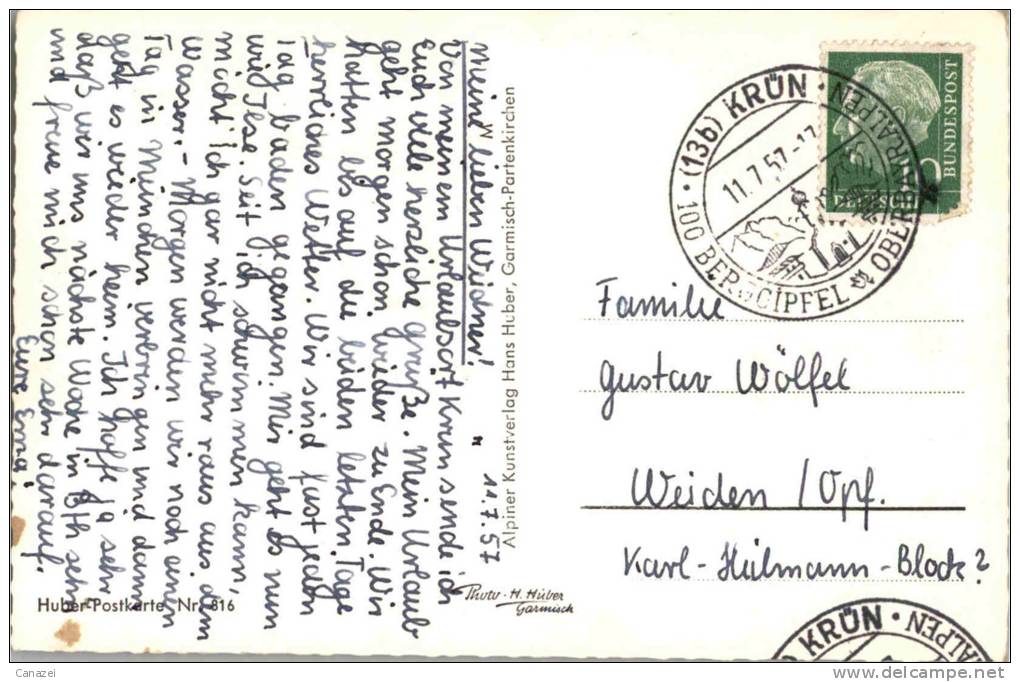 11.7.57
Meine lieben Weidner!
Von meinem Urlaubsort Krün sende ich
Euch viele herzliche Grüße. Mein Urlaub
geht morgen schon wieder zu Ende. Wir
hatten bis auf die beiden letzten Tage
herrliches Wetter. Wir sind fast jeden
Tag baden gegangen. Mir geht es nun
wie Ilse. Seit ich schwimmen kann,
möcht' ich gar nicht mehr raus aus dem
Wasser. - Morgen werden wir noch einen
Tag in München verbringen und dann
geht es wieder heim. Ich hoffe ja sehr
daß wir uns nächste Woche in Bth sehn
und freue mich schon sehr darauf.
Eure Erna!
M
Alpiner Kunstverlag Hans Huber, Garmisch-Partenkirchen
Huber-Postkarte Nr. 816
Photo-H. Huber
Garmisch
(13b) KRÜN
11.7.57.-17
100 BERGGIPFEL
OBERBAYR. ALPEN
DEUTSCHE
BUNDESPOST
Familie
Gustav Wölfel
Weiden /Opf.
Karl-Heilmann-Block?
KRÜN
ALPEN
Canazei
delcampe.net